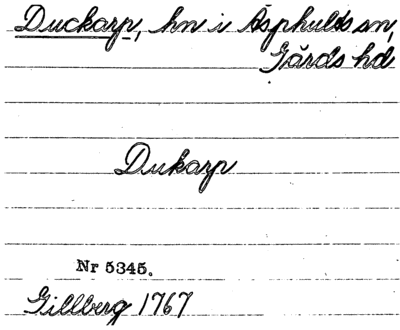 Duckarp, hn i Äsphults sn,
Gärds hd
Dukarp
Nr 5345.
Gillberg 1767